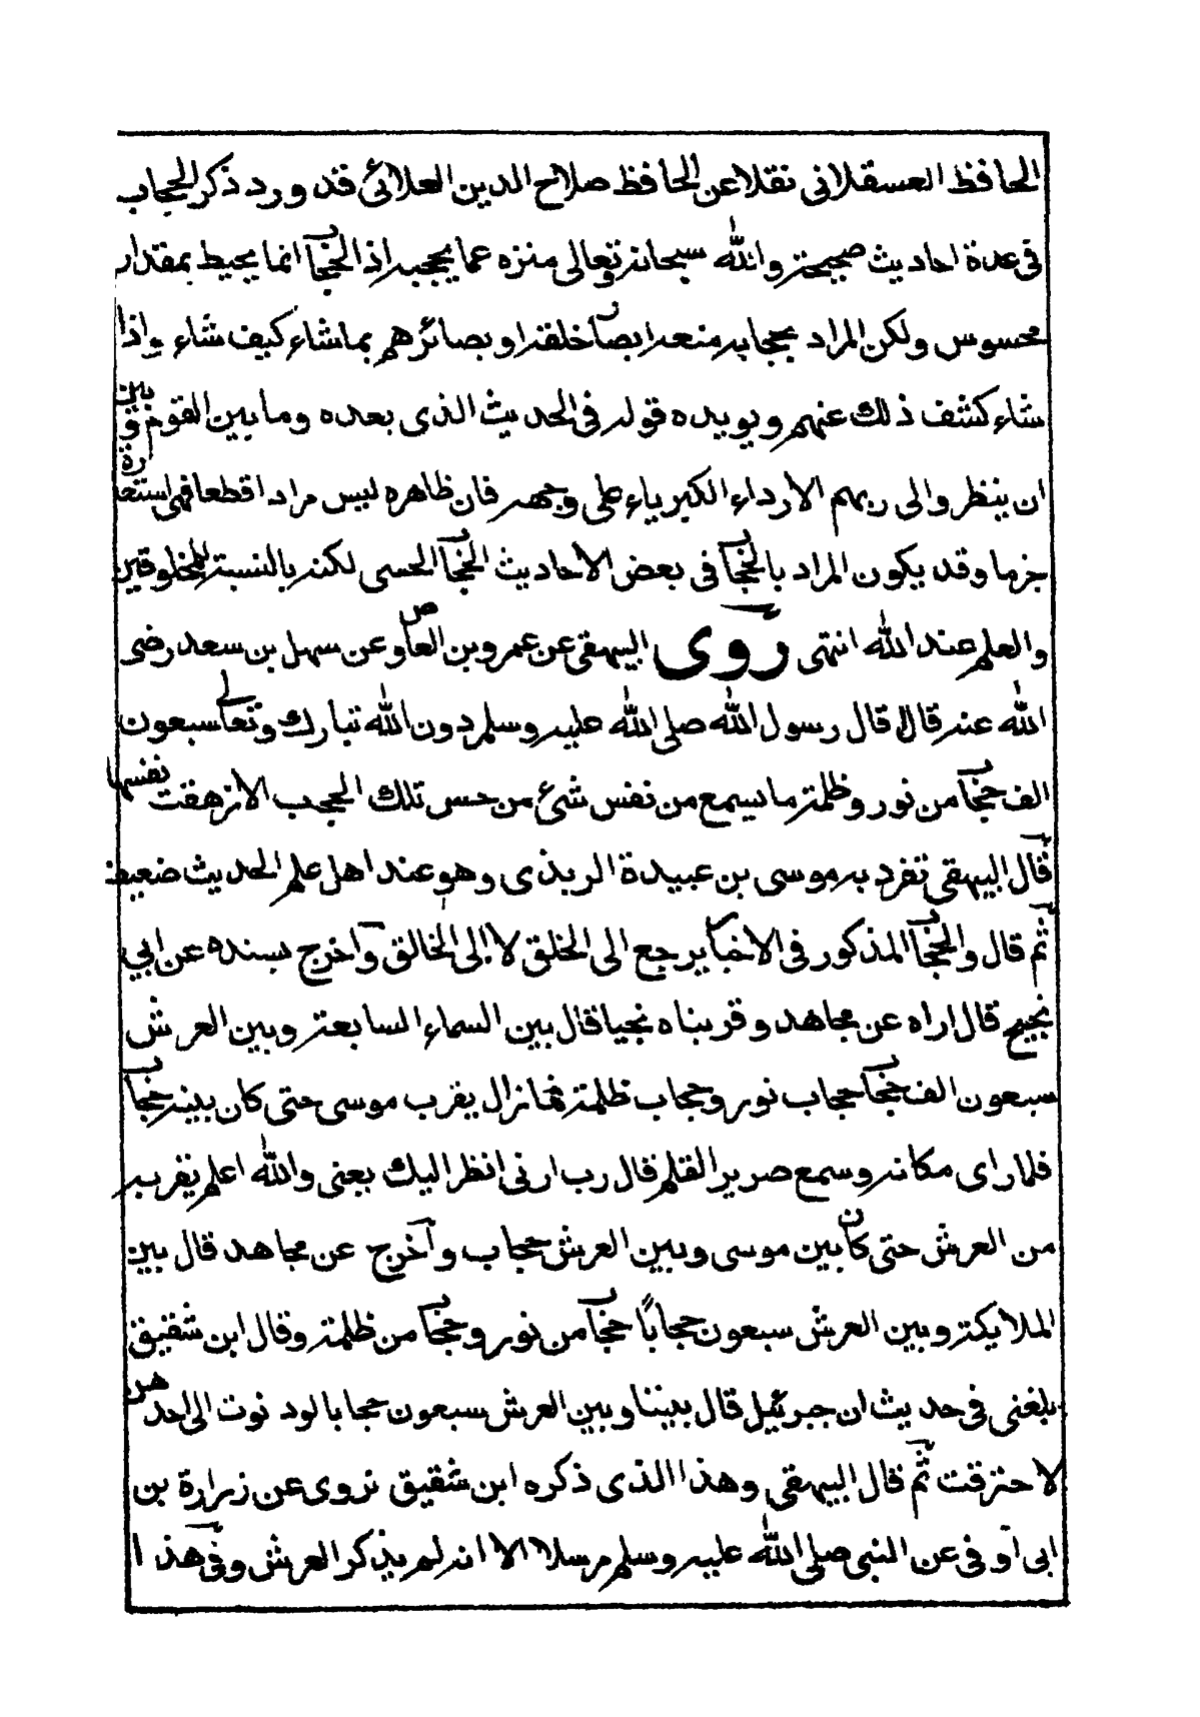 الحافظ العسقلانى نقلا عن الحافظ صلاح الدين العلائى قد ورد ذكر الحجاب
فى عدة احاديث صحيحة والله سبحانه وتعالى منزه عما يحجبه اذ الحجاب انما يحيط بمقدار
محسوس ولكن المراد بحجابه منعه ابصار خلقه او بصائرهم بما شاء كيف شاء واذا
شاء كشف ذلك عنهم ويويده قوله فى الحديث الذى بعده وما بين القوم وبين
ان ينظروا الى ربهم الا رداء الكبرياء على وجهه فان ظاهره ليس مرادا قطعا فهى استعارة
جزما وقد يكون المراد بالحجاب فى بعض الاحاديث الحجاب الحسى لكنه بالنسبة للمخلوقين
والعلم عند الله انتهى روى البيهقى عن عمرو بن العاص وعن سهل بن سعد رضى
الله عنه قال قال رسول الله صلى الله عليه وسلم دون الله تبارك وتعالى سبعون
الف حجاب من نور وظلمة ما يسمع من نفس شئ من حس تلك الحجب الا زهقت نفسها
قال البيهقى تفرد به موسى بن عبيدة الربذى وهو عند اهل علم الحديث ضعيف
ثم قال والحجاب المذكور فى الاخبار يرجع الى الخلق لا الى الخالق واخرج بسنده عن ابي
نجيح قال اراه عن مجاهد وقربناه نجيا قال بين السماء السابعة وبين العرش
سبعون الف حجاب حجاب نور وحجاب ظلمة فما زال يقرب موسى حتى كان بينه حجاب
فلما راى مكانه وسمع صرير القلم قال رب ارنى انظر اليك يعنى والله اعلم يقربه
من العرش حتى كان بين موسى وبين العرش حجاب واخرج عن مجاهد قال بين
الملايكة وبين العرش سبعون حجاباً حجاب من نور وحجاب من ظلمة وقال ابن شقيق
بلغنى فى حديث ان جبرئيل قال بيننا وبين العرش سبعون حجابا لو دنوت الى احدهن
لاحترقت ثم قال البيهقى وهذا الذى ذكره ابن شقيق نروى عن زرارة بن
ابى اوفى عن النبى صلى الله عليه وسلم مرسلا الا انه لم يذكر العرش وفى هذا